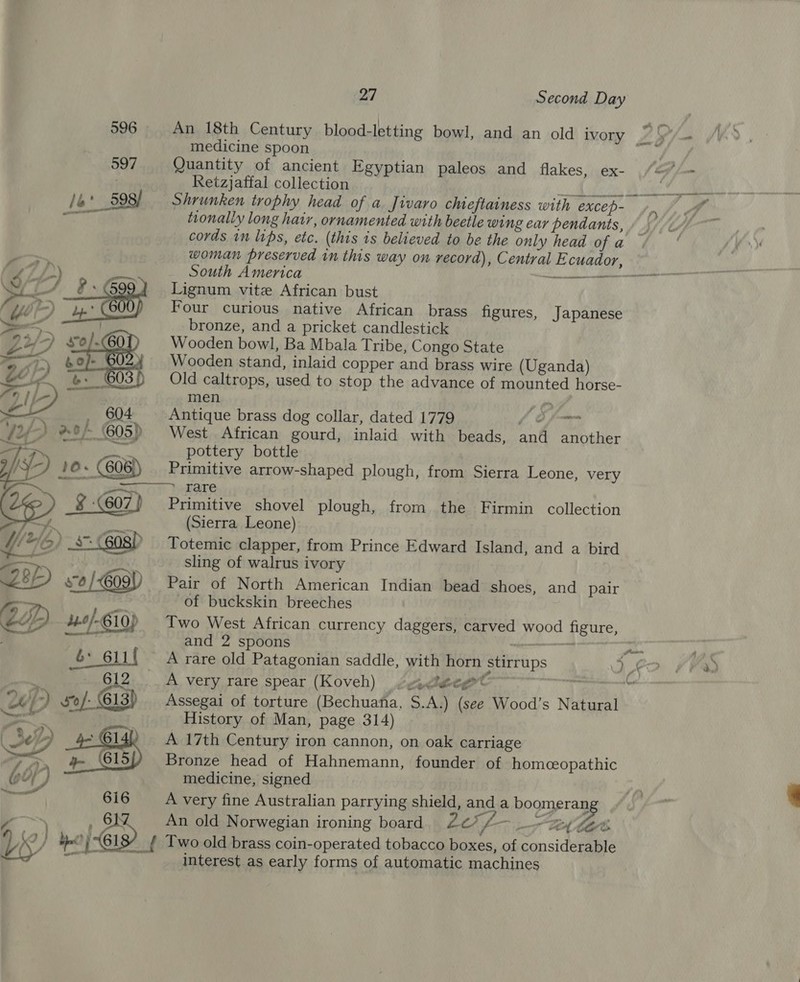 27 Second Day
596 An 18th Century blood-letting bowl, and an old ivory
medicine spoon
597 Quantity of ancient Egyptian paleos and flakes, ex-
Retzjaffal collection
598 Shrunken trophy head of a Jivaro chieftainess with excep-
tionally long hair, ornamented with beetle wing ear pendants,
cords in lips, etc. (this is believed to be the only head of a
woman preserved in this way on record), Central Ecuador,
South America
599 Lignum vitæ African bust
600 Four curious native African brass figures, Japanese
bronze, and a pricket candlestick
601 Wooden bowl, Ba Mbala Tribe, Congo State
602 Wooden stand, inlaid copper and brass wire (Uganda)
603 Old caltrops, used to stop the advance of mounted horse-
men
604 Antique brass dog collar, dated 1779
605 West African gourd, inlaid with beads, and another
pottery bottle
10- 606 Primitive arrow-shaped plough, from Sierra Leone, very
rare
607 Primitive shovel plough, from the Firmin collection
(Sierra Leone)
608 Totemic clapper, from Prince Edward Island, and a bird
sling of walrus ivory
609 Pair of North American Indian bead shoes, and pair
of buckskin breeches
610 Two West African currency daggers, carved wood figure,
and 2 spoons
611 A rare old Patagonian saddle, with horn stirrups
612 A very rare spear (Koveh)
613 Assegai of torture (Bechuana, S.A.) (see Wood's Natural
History of Man, page 314)
614 A 17th Century iron cannon, on oak carriage
615 Bronze head of Hahnemann, founder of homœopathic
medicine, signed
616 A very fine Australian parrying shield, and a boomerang
617 An old Norwegian ironing board
618 Two old brass coin-operated tobacco boxes, of considerable
interest as early forms of automatic machines